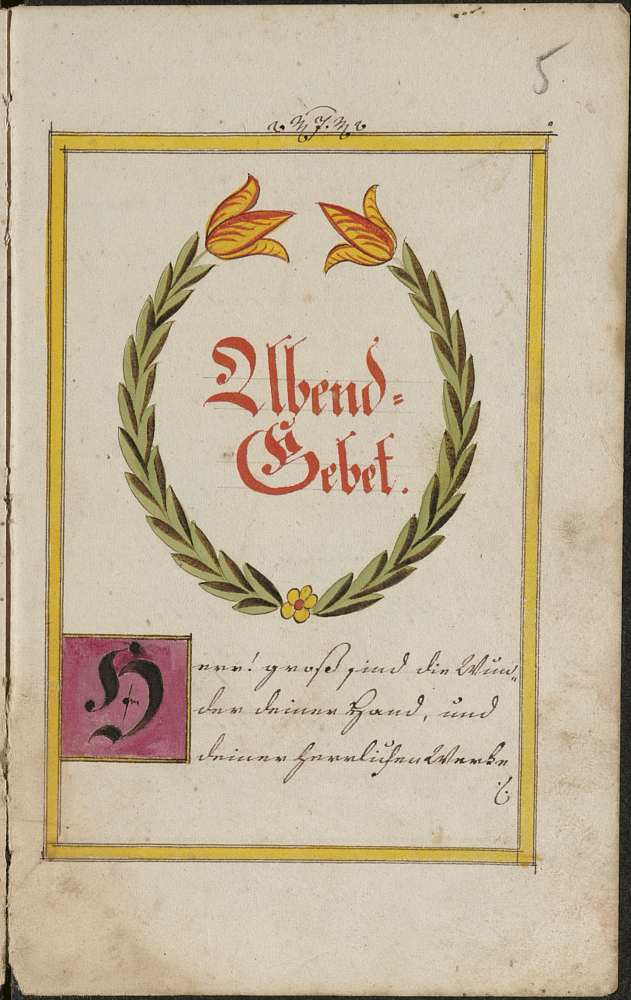 5
Abend-
Gebet.
Herr! groß sind die Wun„
der deiner Hand, und
deiner herrlichen Werke